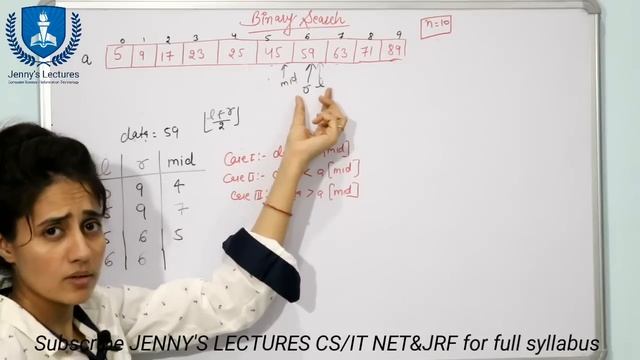 Binary Search
n=10
0 1 2 3 4 5 6 7 8 9
a 5 9 17 23 25 45 59 63 71 89
Jenny's Lectures
Computer Science / Information Technology
mid r l
data = 59
⌊l+r/2⌋
l r mid
9 4
9 7
5 6 5
6 6
Case I:- d [mid]
Case II:- < a[mid]
Case III: > a[mid]
Subscribe JENNY'S LECTURES CS/IT NET&JRF for full syllabus